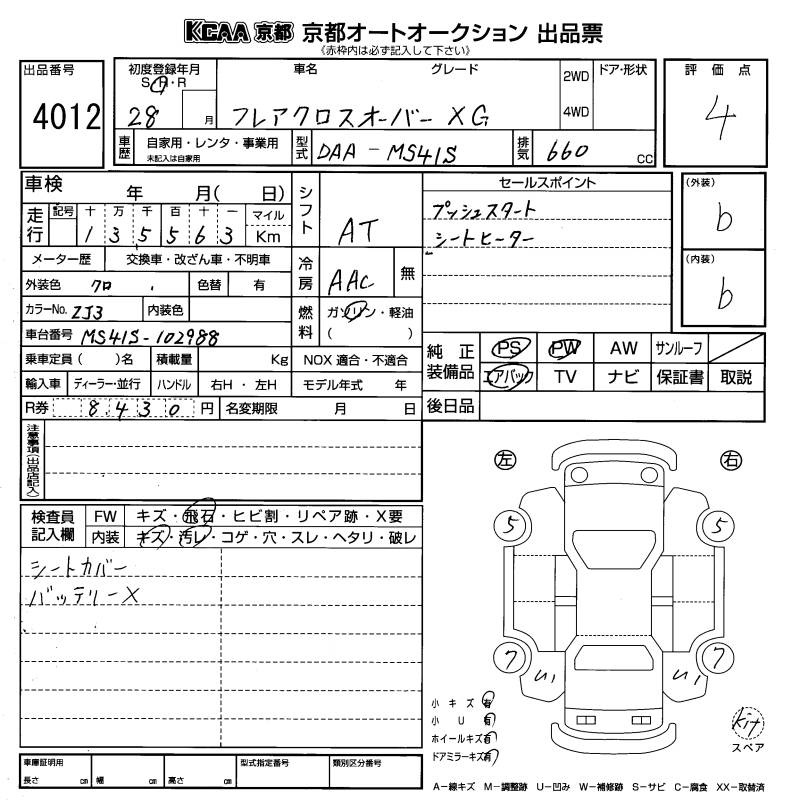 KCAA 京都 京都オートオークション 出品票
《赤枠内は必ず記入して下さい》
出品番号
4012
初度登録年月
S・H・R
28 月
車名 グレード
フレアクロスオーバー XG
2WD
4WD
ドア・形状
評価点
4
車歴
自家用・レンタ・事業用
未記入は自家用
型式 DAA-MS41S
排気 660 CC
車検 年 月( 日)
走行 記号 十 万 千 百 十 一 マイル
1 3 5 5 6 3 Km
メーター歴 交換車・改ざん車・不明車
外装色 クロ 色替 有
カラーNo. ZJ3 内装色
車台番号 MS41S-102988
乗車定員( )名 積載量 Kg
輸入車 ディーラー・並行 ハンドル 右H・左H
R券 8,430 円 名変期限 月 日
シフト AT
冷房 AAC 無
燃料 ガソリン・軽油
( )
NOX 適合・不適合
モデル年式 年
セールスポイント
プッシュスタート
シートヒーター
(外装)
b
(内装)
b
純正装備品 PS PW AW サンルーフ
エアバック TV ナビ 保証書 取説
後日品
注意事項(出品店記入)
検査員記入欄
FW キズ・飛石・ヒビ割・リペア跡・X要
内装 キズ・汚レ・コゲ・穴・スレ・ヘタリ・破レ
シートカバー
バッテリーX
左 右
5 5
7 7
小キズ 有
小U 有
ホイールキズ 有
ドアミラーキズ 有
kit
スペア
車庫証明用
長さ cm 幅 cm 高さ cm
型式指定番号 類別区分番号
A−線キズ M−調整跡 U−凹み W−補修跡 S−サビ C−腐食 XX−取替済